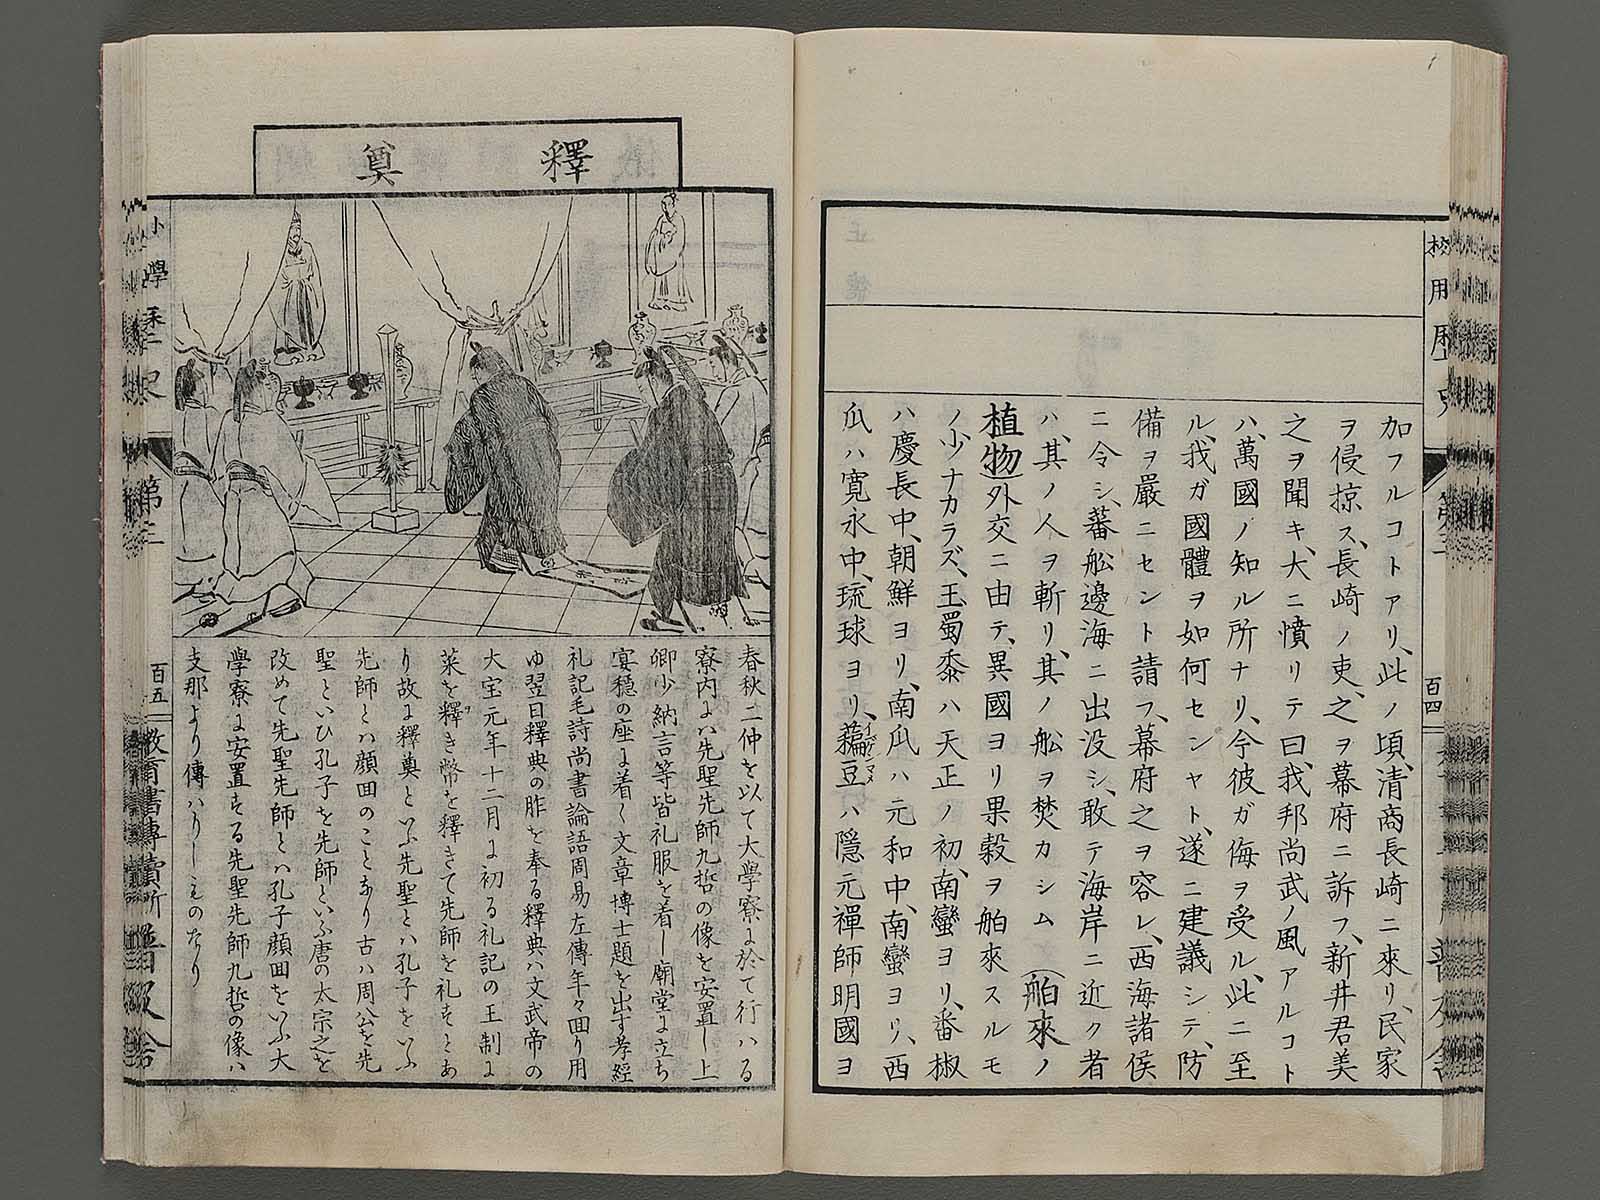 加フルコトアリ、此ノ頃、清商長崎ニ來リ、民家
ヲ侵掠ス、長崎ノ吏、之ヲ幕府ニ訴フ、新井君美
之ヲ聞キ、大ニ憤リテ曰、我邦尚武ノ風アルコト
ハ、萬國ノ知ル所ナリ、今彼ガ侮ヲ受ル、此ニ至
ル、我ガ國體ヲ如何センヤト、遂ニ建議シテ、防
備ヲ嚴ニセント請フ、幕府之ヲ容レ、西海諸侯
ニ令シ、蕃舩邊海ニ出没シ、敢テ海岸ニ近ク者
ハ、其ノ人ヲ斬リ、其ノ舩ヲ焚カシム (舶來ノ
植物)外交ニ由テ、異國ヨリ果穀ヲ舶來スルモ
ノ少ナカラズ、玉蜀黍ハ天正ノ初、南蠻ヨリ、番椒
ハ慶長中、朝鮮ヨリ、南瓜ハ元和中、南蠻ヨリ、西
瓜ハ寛永中、琉球ヨリ、藊豆ハ隱元禪師明國ヨ
百四
釋奠
春秋二仲を以て大學寮に於て行ハる
寮内には先聖先師九哲の像を安置し上
卿少納言等皆礼服を着し廟堂に立ち
宴穏の座に着く文章博士題を出す孝經
礼記毛詩尚書論語周易左傳年々回り用
ゆ翌日釋典の胙を奉る釋典ハ文武帝の
大宝元年十二月に初る礼記の王制に
菜を釋き幣を釋きて先師を礼すとあ
り故に釋奠といふ先聖とハ孔子をいふ
先師とハ顔回のことなり古ハ周公を先
聖といひ孔子を先師といふ唐の太宗之を
改めて先聖先師とハ孔子顔回をいふ大
學寮に安置する先聖先師九哲の像ハ
支那より傳ハりしものなり
百五